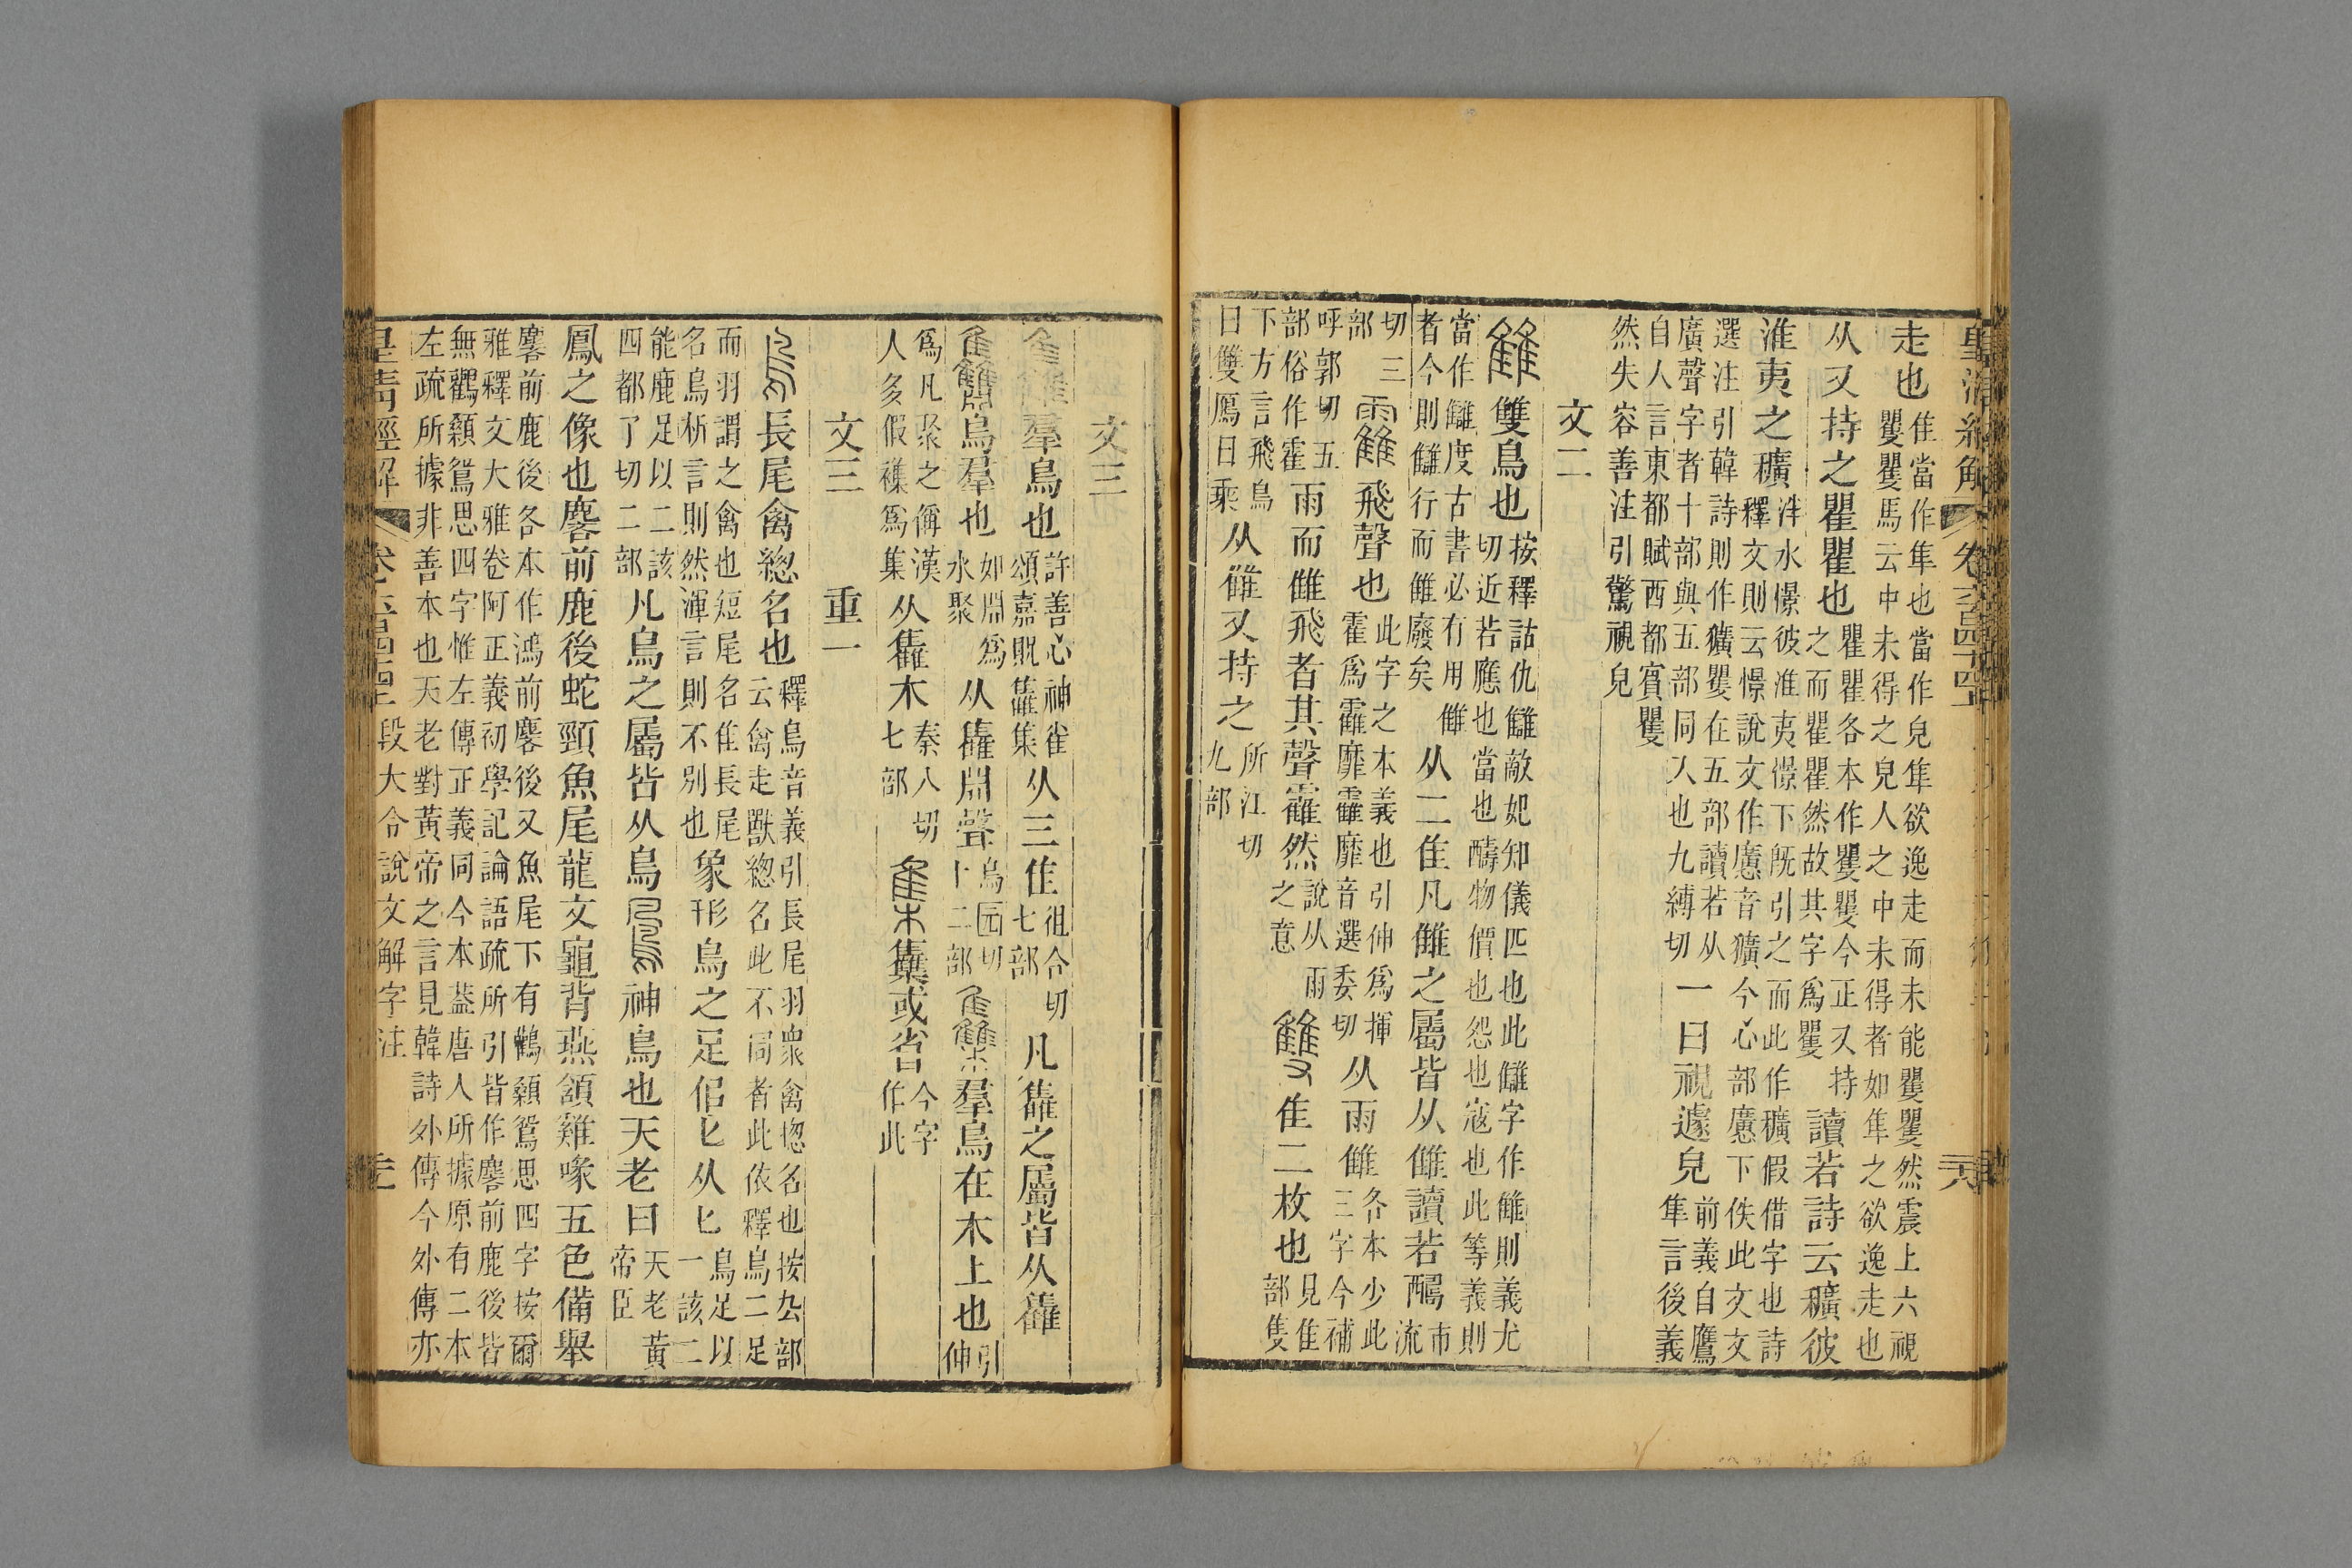 皇清經解 卷六百四十四上
走也
隹當作隼也當作皃隼欲逸走而未能矍矍然震上六視
矍矍馬云中未得之皃人之中未得者如隼之欲逸走也
从又持之瞿瞿也
瞿瞿各本作矍矍今正又持
之而瞿瞿然故其字爲矍
讀若詩云穬彼
淮夷之穬
泮水憬彼淮夷憬下旣引之而此作穬假借字也詩
釋文則云憬說文作懬音獷今心部懬下佚此文文
選注引韓詩則作獷矍在五部讀若从
廣聲字者十部與五部同入也九縛切
一曰視遽皃
前義自鷹
隼言後義
自人言東都賦西都賓矍
然失容善注引驚視皃
文二
雔 雙鳥也
按釋詁仇讎敵妃知儀匹也此讎字作雔則義尤
切近若應也當也醻物價也怨也寇也此等義則
當作讎度古書必有用雔
者今則讎行而雔廢矣
从二隹凡雔之屬皆从雔讀若醻
市
流
切三
部
靃 飛聲也
此字之本義也引伸爲揮
霍爲靃靡靃靡音選委切
从雨雔
各本少此
三字今補
呼郭切五
部俗作霍
雨而雔飛者其聲靃然
說从雨
之意
雙 隹二枚也
見隹
部隻
下方言飛鳥
曰雙鴈曰乘
从雔又持之
所江切
九部
文三
雥 羣鳥也
許善心神雀
頌嘉貺雥集
从三隹
徂合切
七部
凡雥之屬皆从雥
䨊 鳥羣也
如淵爲
水聚
从雥淵聲
烏园切
十二部
雧 羣鳥在木上也
引
伸
爲凡聚之偁漢
人多假襍爲集
从雥木
秦入切
七部
集 雧或省
今字
作此
文三 重一
鳥 長尾禽緫名也
釋鳥音義引長尾羽衆禽緫名也按厹部
云禽走獸緫名此不同者此依釋鳥二足
而羽謂之禽也短尾名隹長尾
名鳥析言則然渾言則不別也
象形鳥之足佀匕从匕
鳥足以
一該二
能鹿足以二該
四都了切二部
凡鳥之屬皆从鳥
鳳 神鳥也天老曰
天老黃
帝臣
鳳之像也麐前鹿後蛇頸魚尾龍文龜背燕頷雞喙五色備舉
麐前鹿後各本作鴻前麐後又魚尾下有鸛顙鴛思四字按爾
雅釋文大雅卷阿正義初學記論語疏所引皆作麐前鹿後皆
無鸛顙鴛思四字惟左傳正義同今本葢唐人所據原有二本
左疏所據非善本也天老對黃帝之言見韓詩外傳今外傳亦
皇清經解 卷六百四十四上 段大令說文解字注